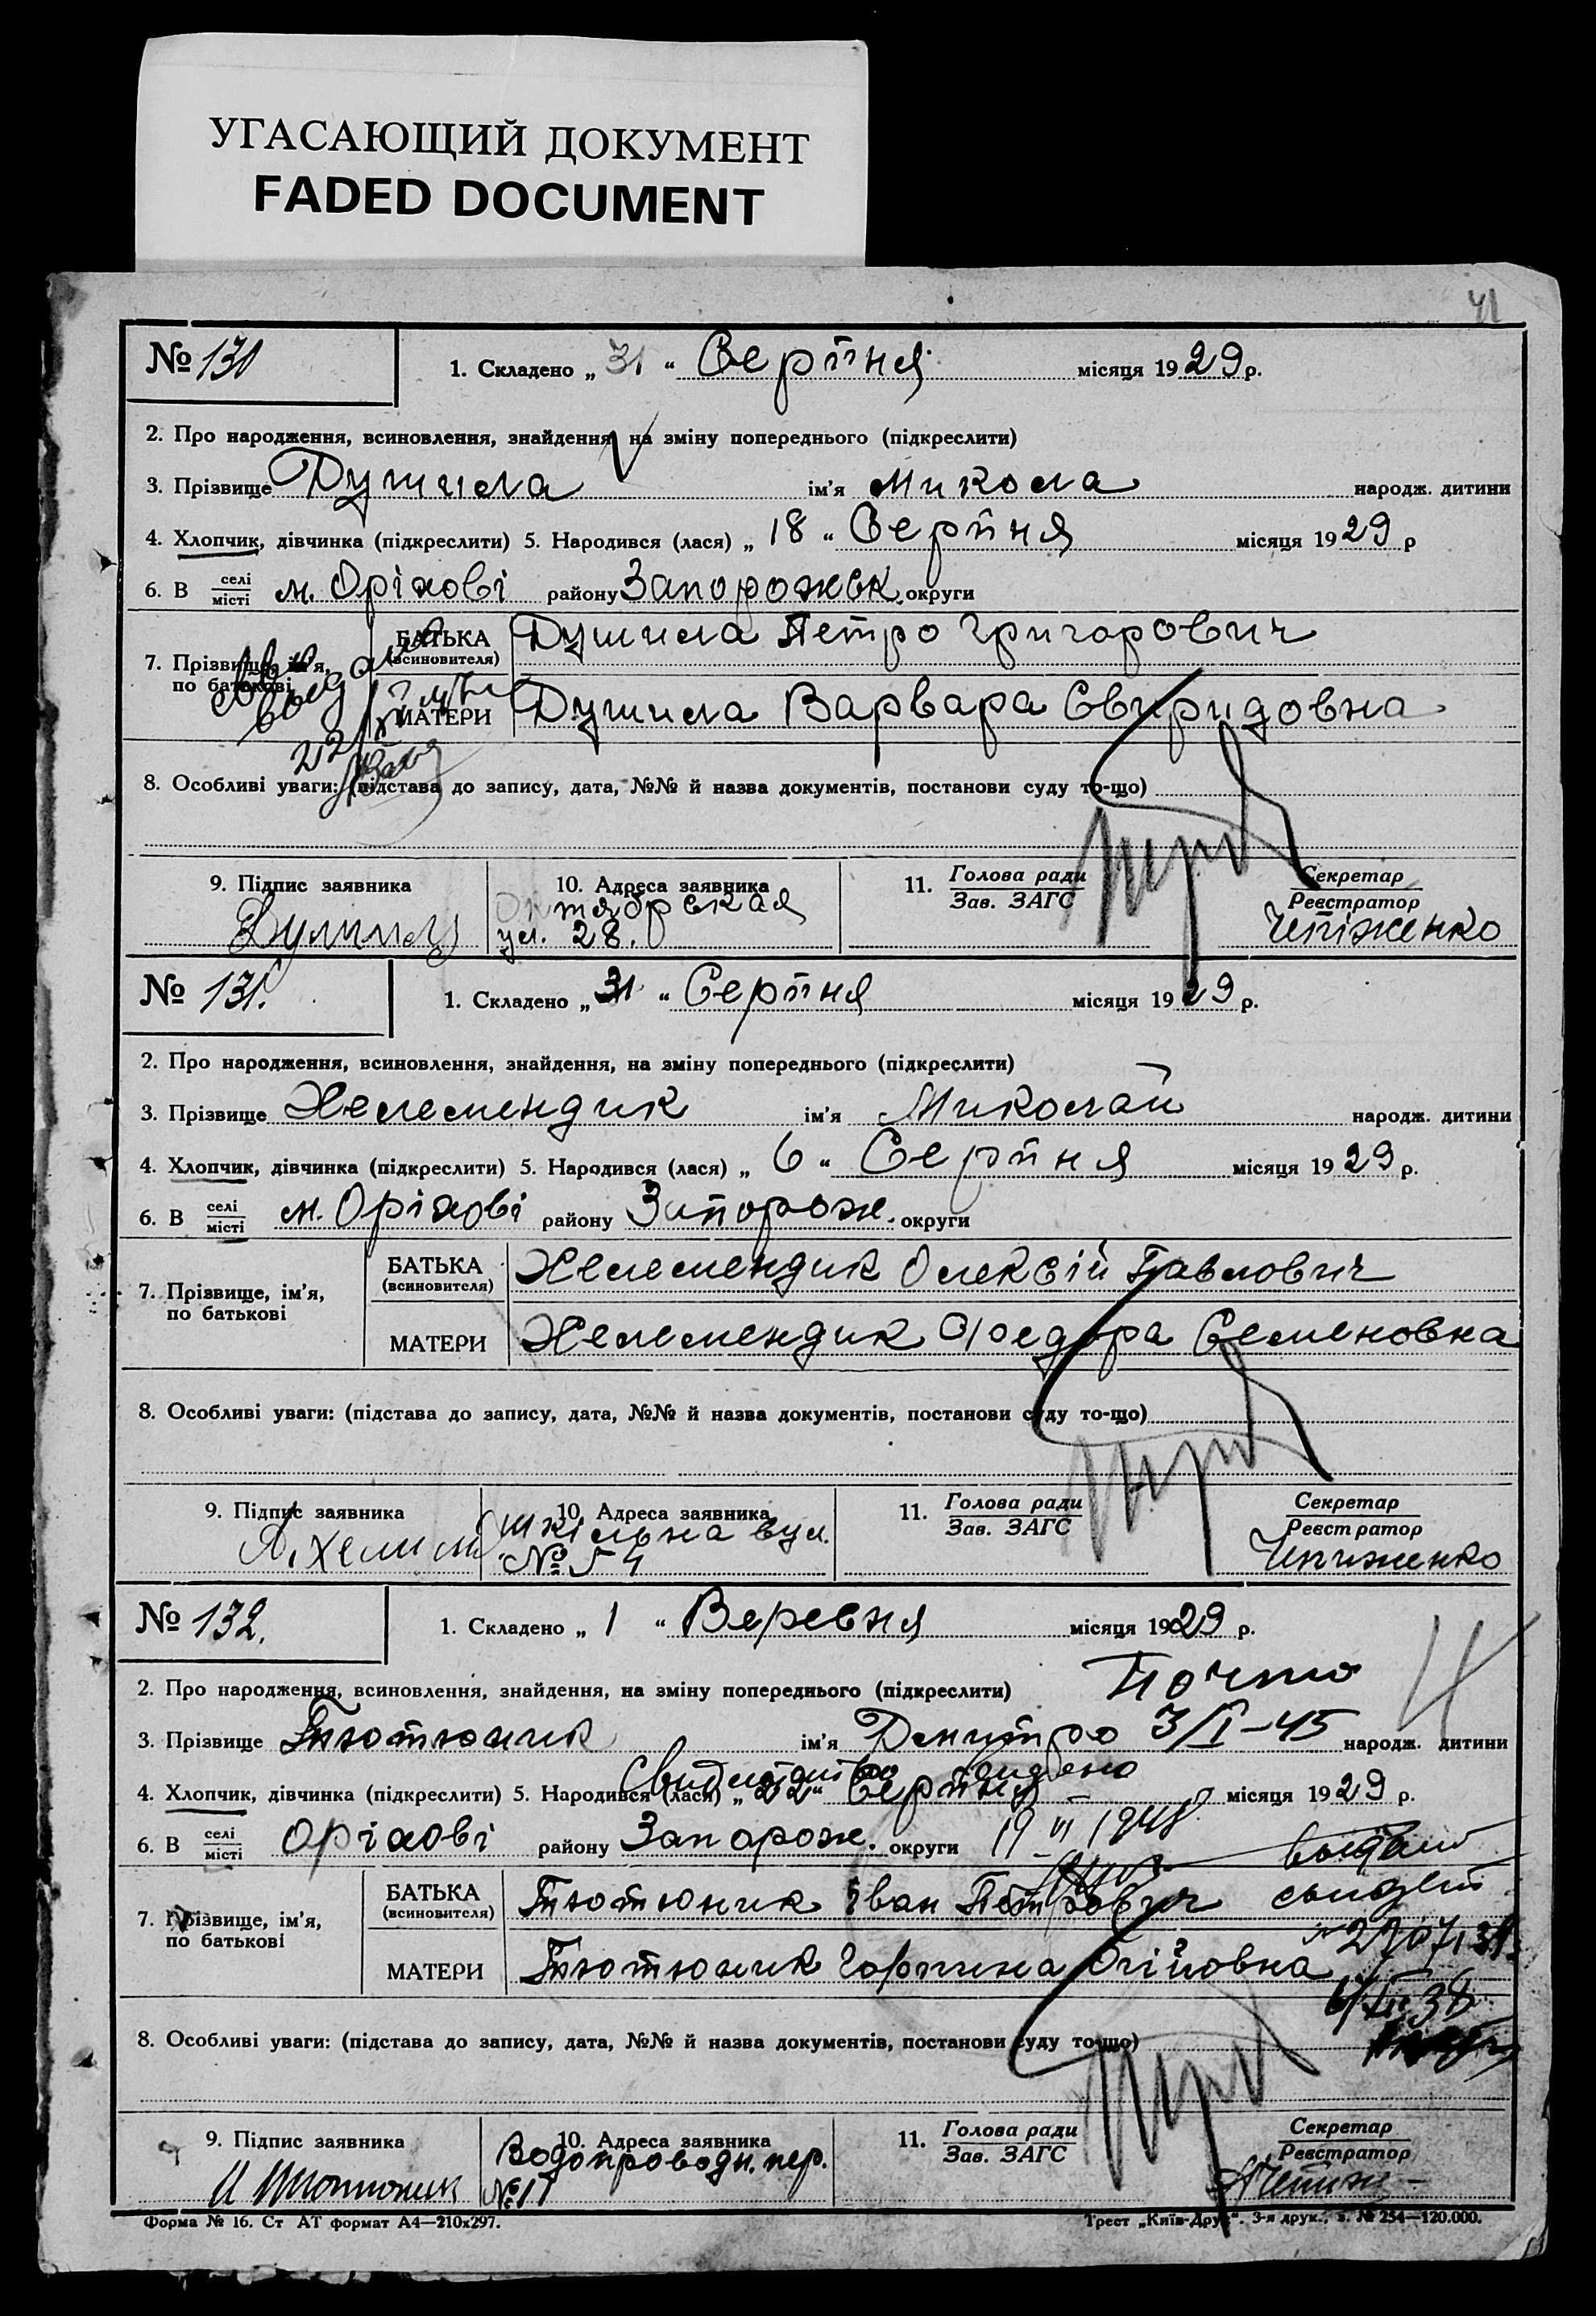 УГАСАЮЩИЙ ДОКУМЕНТ
FADED DOCUMENT
41
№ 130
1. Складено „ 31 “ Серпня місяця 1929 р.
2. Про народження, всиновлення, знайдення, на зміну попереднього (підкреслити)
3. Прізвище Душила ім'я Микола народж. дитини
4. Хлопчик, дівчинка (підкреслити) 5. Народився (лася) „ 18 “ Серпня місяця 1929 р
6. В селі/місті м. Оріхові району Запорожськ. округи
7. Прізвище, ім'я, по батькові
БАТЬКА (всиновителя) Душила Петро Григорович
МАТЕРИ Душила Варвара Свиридовна
8. Особливі уваги: (підстава до запису, дата, №№ й назва документів, постанови суду то-що)
9. Підпис заявника
10. Адреса заявника
Октябрская
ул. 28.
11. Голова ради
Зав. ЗАГС
Секретар
Реєстратор
Чепіженко
№ 131.
1. Складено „ 31 “ Серпня місяця 1929 р.
2. Про народження, всиновлення, знайдення, на зміну попереднього (підкреслити)
3. Прізвище Хелемендик ім'я Миколай народж. дитини
4. Хлопчик, дівчинка (підкреслити) 5. Народився (лася) „ 6 “ Серпня місяця 1929 р.
6. В селі/місті м. Оріхові району Запорож. округи
7. Прізвище, ім'я, по батькові
БАТЬКА (всиновителя) Хелемендик Олексій Павлович
МАТЕРИ Хелемендик Федора Семеновна
8. Особливі уваги: (підстава до запису, дата, №№ й назва документів, постанови суду то-що)
9. Підпис заявника
10. Адреса заявника
Шкільна вул.
№ 54
11. Голова ради
Зав. ЗАГС
Секретар
Реєстратор
Чепиженко
№ 132.
1. Складено „ 1 “ Вересня місяця 1929 р.
2. Про народження, всиновлення, знайдення, на зміну попереднього (підкреслити)
3. Прізвище Тютюник ім'я Дмитро 3/I-45 народж. дитини
4. Хлопчик, дівчинка (підкреслити) 5. Народився (лася) „ 22 “ Серпня місяця 1929 р.
6. В селі/місті Оріхові району Запорож. округи 19 VI 1948
7. Прізвище, ім'я, по батькові
БАТЬКА (всиновителя) Тютюник Іван Петрович
МАТЕРИ Тютюник Горпина
8. Особливі уваги: (підстава до запису, дата, №№ й назва документів, постанови суду то-що)
9. Підпис заявника
10. Адреса заявника
Водопроводн. пер.
11. Голова ради
Зав. ЗАГС
Секретар
Реєстратор
Форма № 16. Ст АТ формат А4—210x297.
Трест „Київ-Друк“. 3-я друк., з. № 254—120.000.